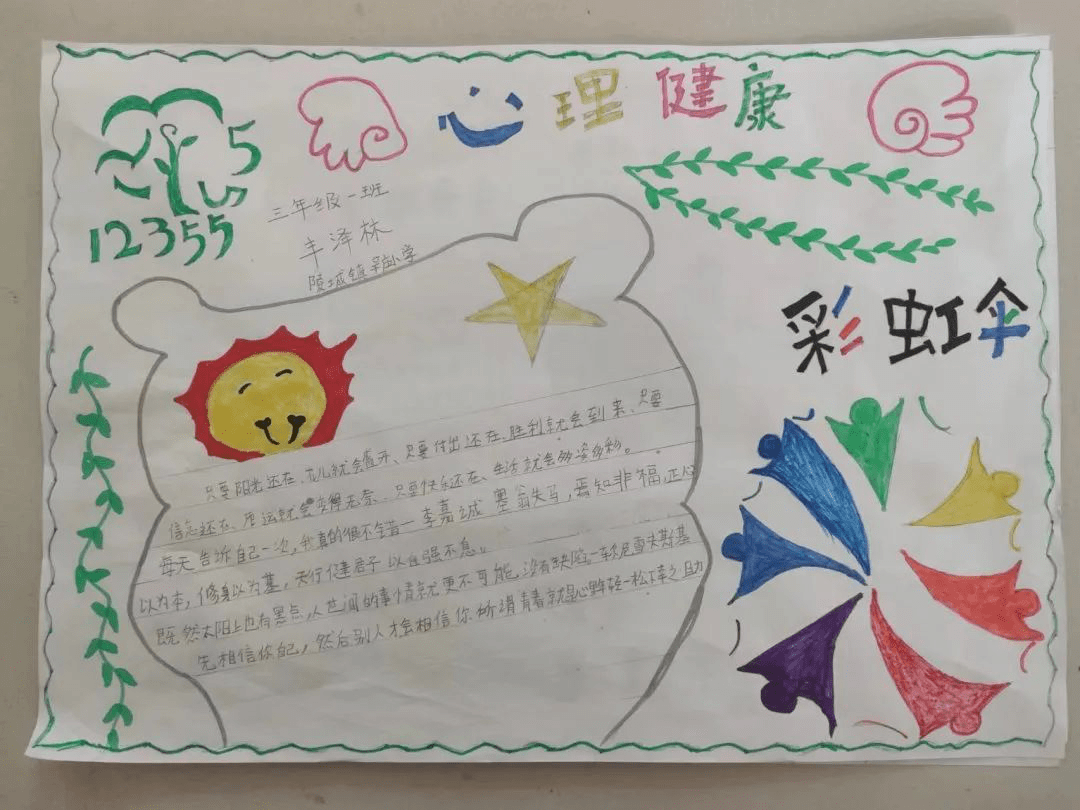 心理健康
5
25
12355
三年级一班
丰泽林
陵城镇 小学
彩虹伞
只要阳光还在、花儿就会盛开、只要付出还在、胜利就会到来、只要
信念还在、厄运就会变得无奈、只要快乐还在、生活就会多姿多彩。
每天告诉自己一次,我真的很不错一李嘉诚 塞翁失马,焉知非福,正心
以为本,修身以为基,天行健君子以自强不息。
既然太阳上也有黑点,人世间的事情就更不可能没有缺陷。一车尔尼雪夫斯基
先相信你自己,然后别人才会相信你 所谓青春就是心 年轻一松下幸之助